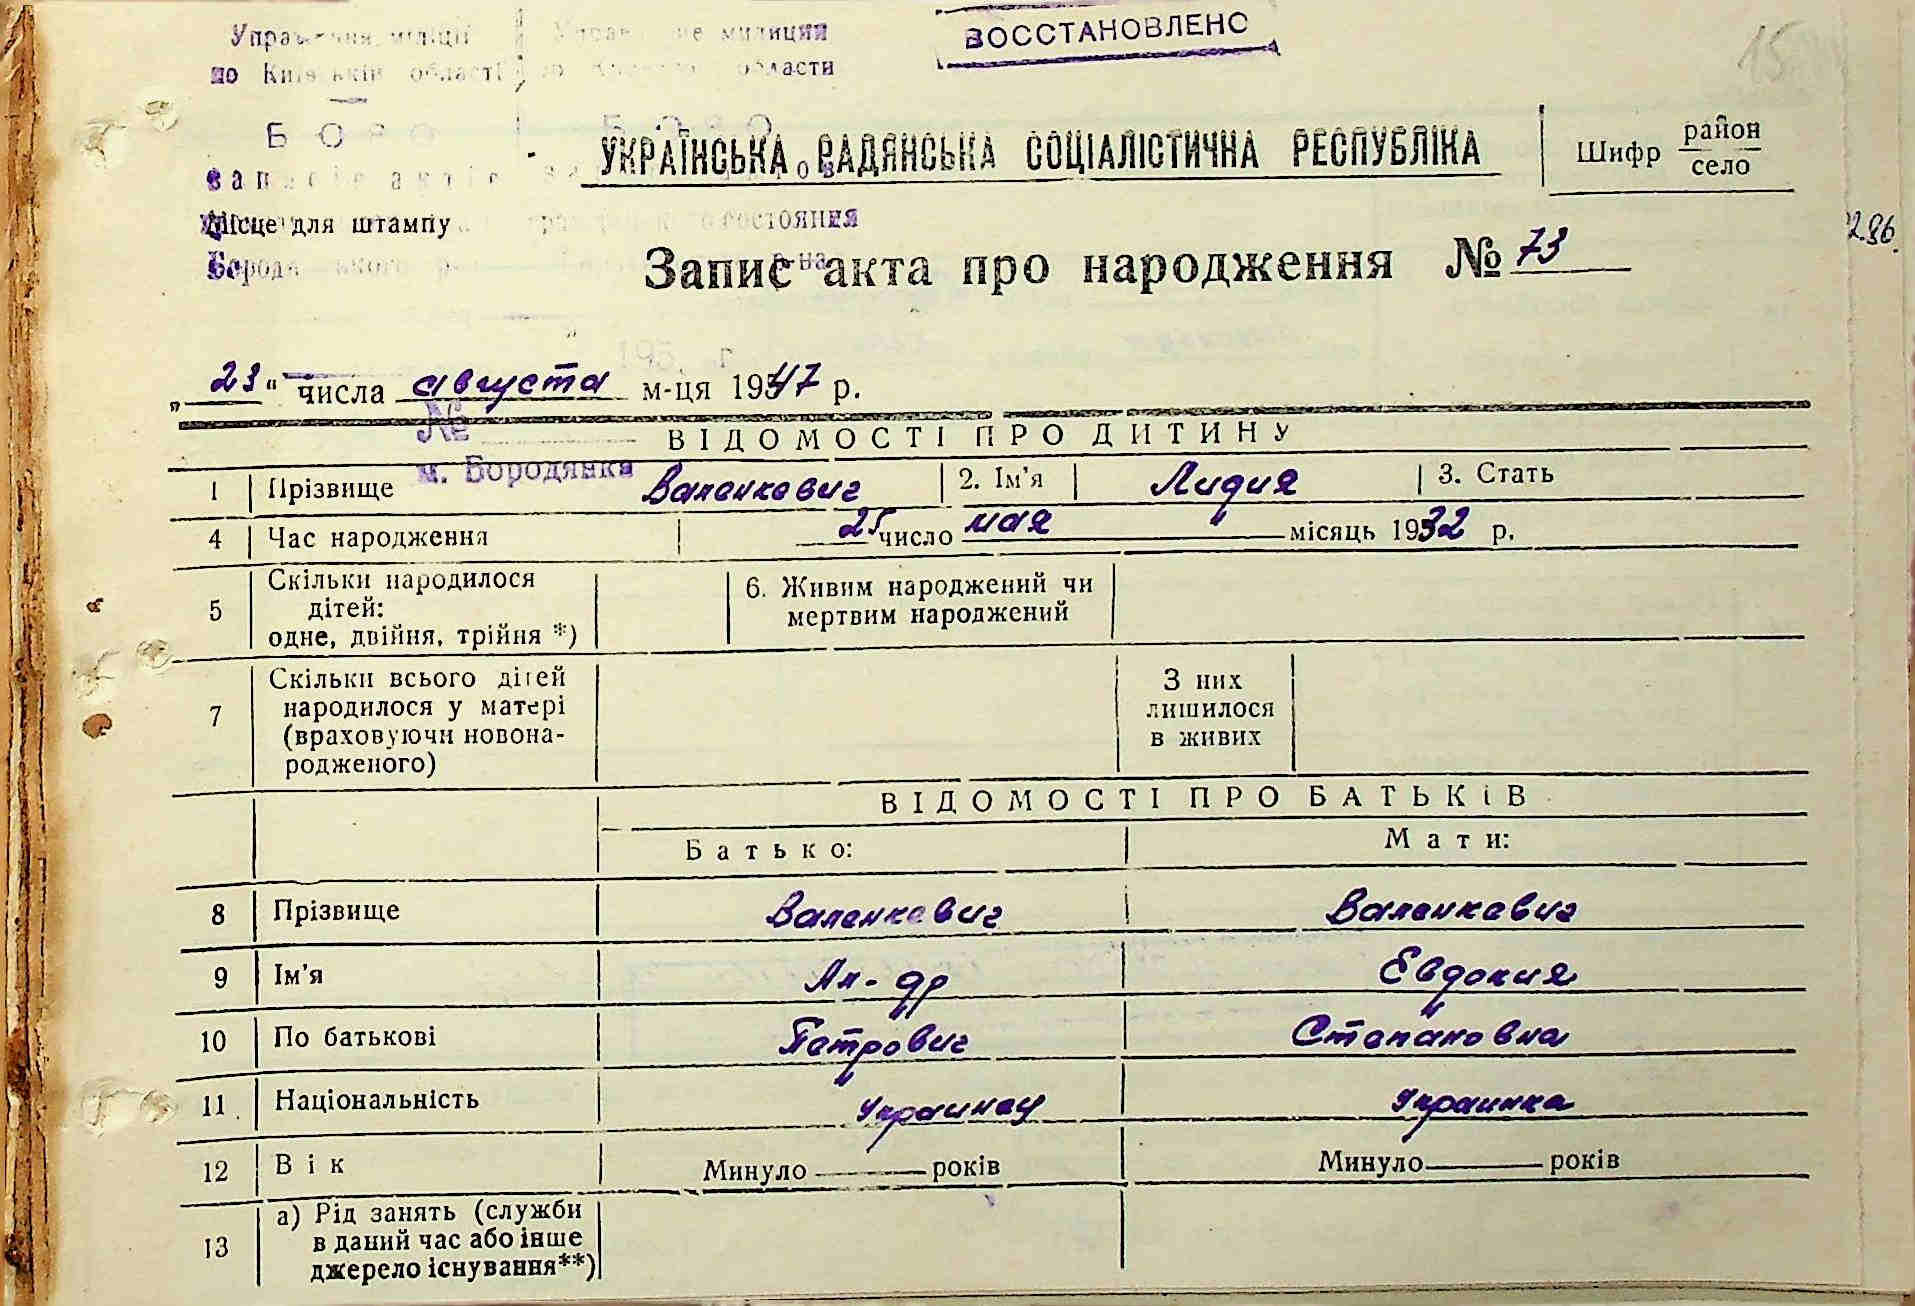 Управління міліції
по Київській області
милиции
области
ВОССТАНОВЛЕНО
15
БЮРО
БЮРО
записів актів
УКРАЇНСЬКА РАДЯНСЬКА СОЦІАЛІСТИЧНА РЕСПУБЛІКА
Шифр район
село
Місце для штампу
состояния
р-на
Запис акта про народження № 73
„23“ числа августа м-ця 1947 р.
195 г.
№
м. Бородянка
ВІДОМОСТІ ПРО ДИТИНУ
1 Прізвище Валенкевич 2. Ім’я Лидия 3. Стать
4 Час народження 25 число мая місяць 1932 р.
5 Скільки народилося
дітей:
одне, двійня, трійня *)
6. Живим народжений чи
мертвим народжений
7 Скільки всього дітей
народилося у матері
(враховуючи новона-
родженого)
З них
лишилося
в живих
ВІДОМОСТІ ПРО БАТЬКІВ
Батько: Мати:
8 Прізвище Валенкевич Валенкевич
9 Ім’я Ал-др Евдокия
10 По батькові Петрович Степановна
11 Національність Украинец Украинка
12 Вік Минуло років Минуло років
13 а) Рід занять (служби
в даний час або інше
джерело існування**)